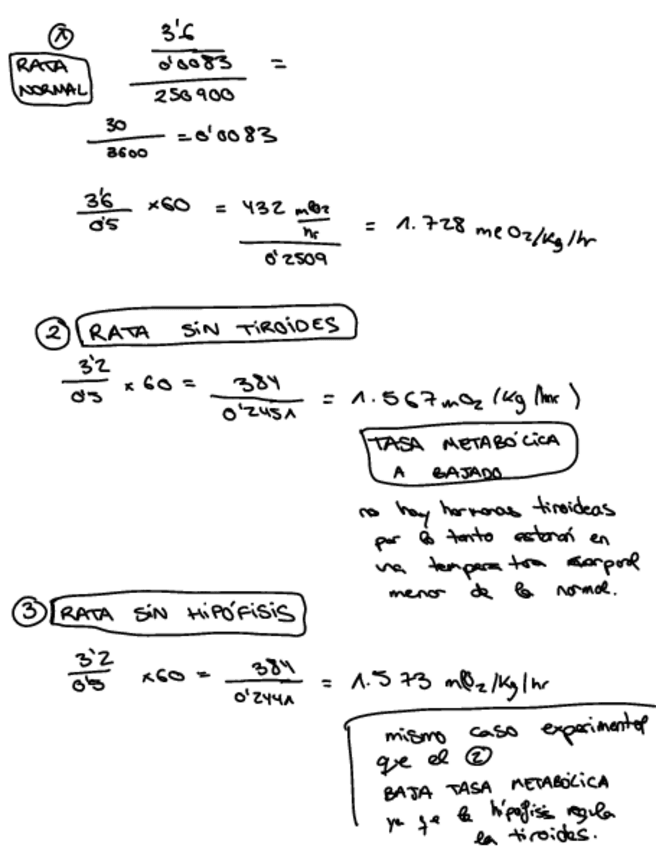 ①
RATA
NORMAL
3'6
0'0083
250900
=
30
3600
= 0'0083
3'6
0'5
x60 = 432 mlO2
hr
0'2509
= 1.728 mlO2/Kg/hr
② RATA SIN TIROIDES
3'2
0'5
x 60 = 384
0'2451
= 1.567 mO2 /Kg/hr)
TASA METABÓLICA
A BAJADO
no hay hormonas tiroideas
por lo tanto estará en
una temperatura corporal
menor de lo normal.
③ RATA SIN HIPÓFISIS
3'2
0'5
x60 = 384
0'2441
= 1.573 mlO2/Kg/hr
mismo caso experimental
que el ②
BAJA TASA METABÓLICA
ya que la hipófisis regula
la tiroides.